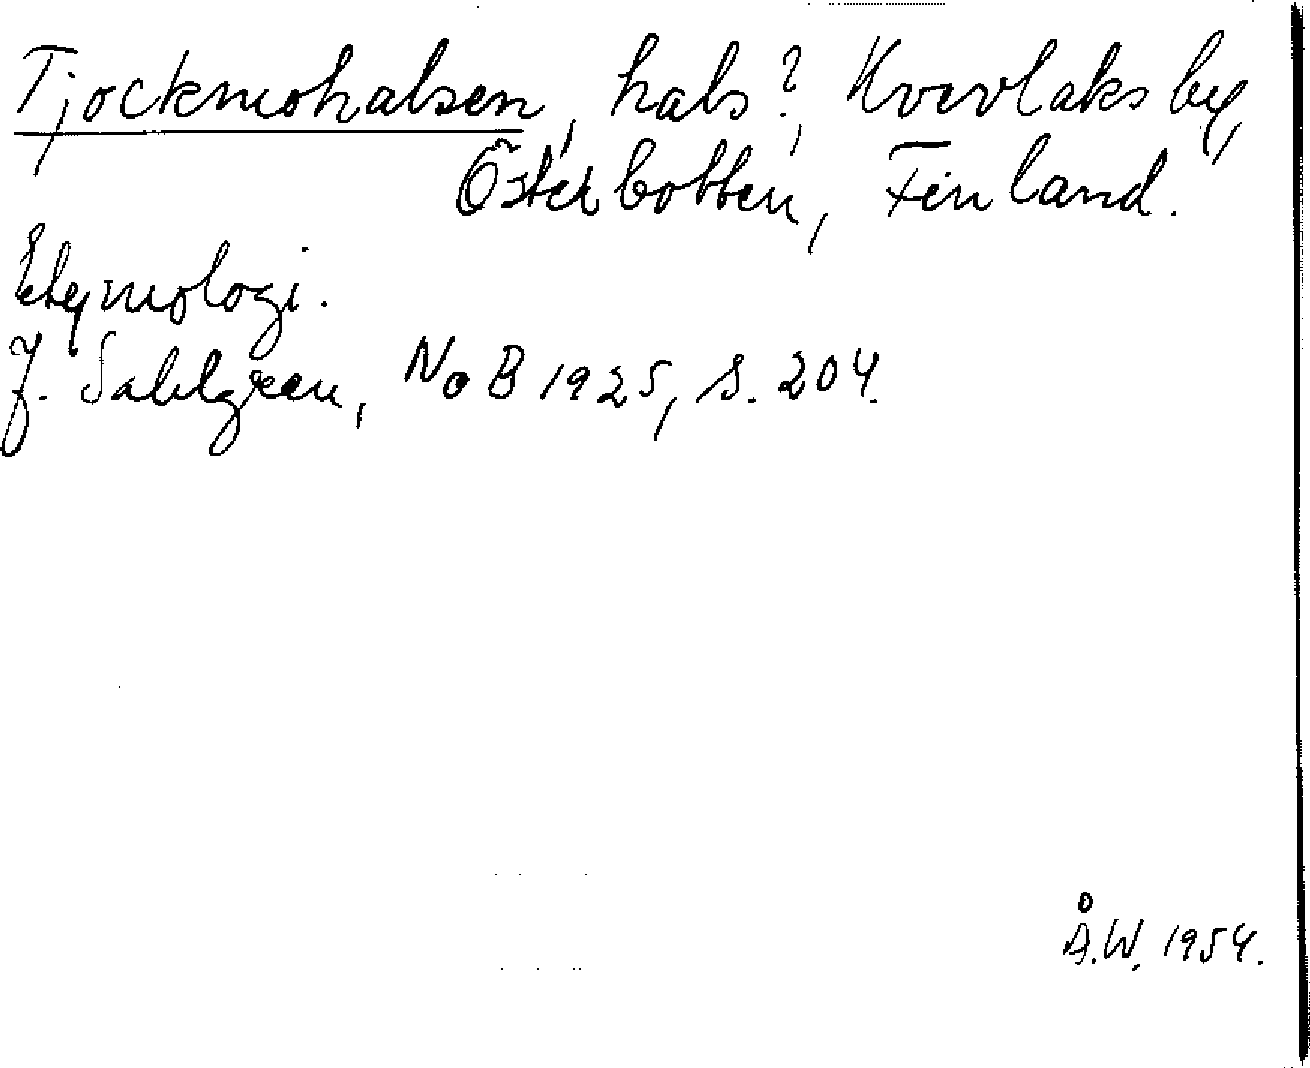 Tjockmohalsen, hals?, Kvevlaks by,
Österbotten, Finland.
Etymologi.
J. Sahlgren, NoB 1925, s. 204.
Å.W. 1954.